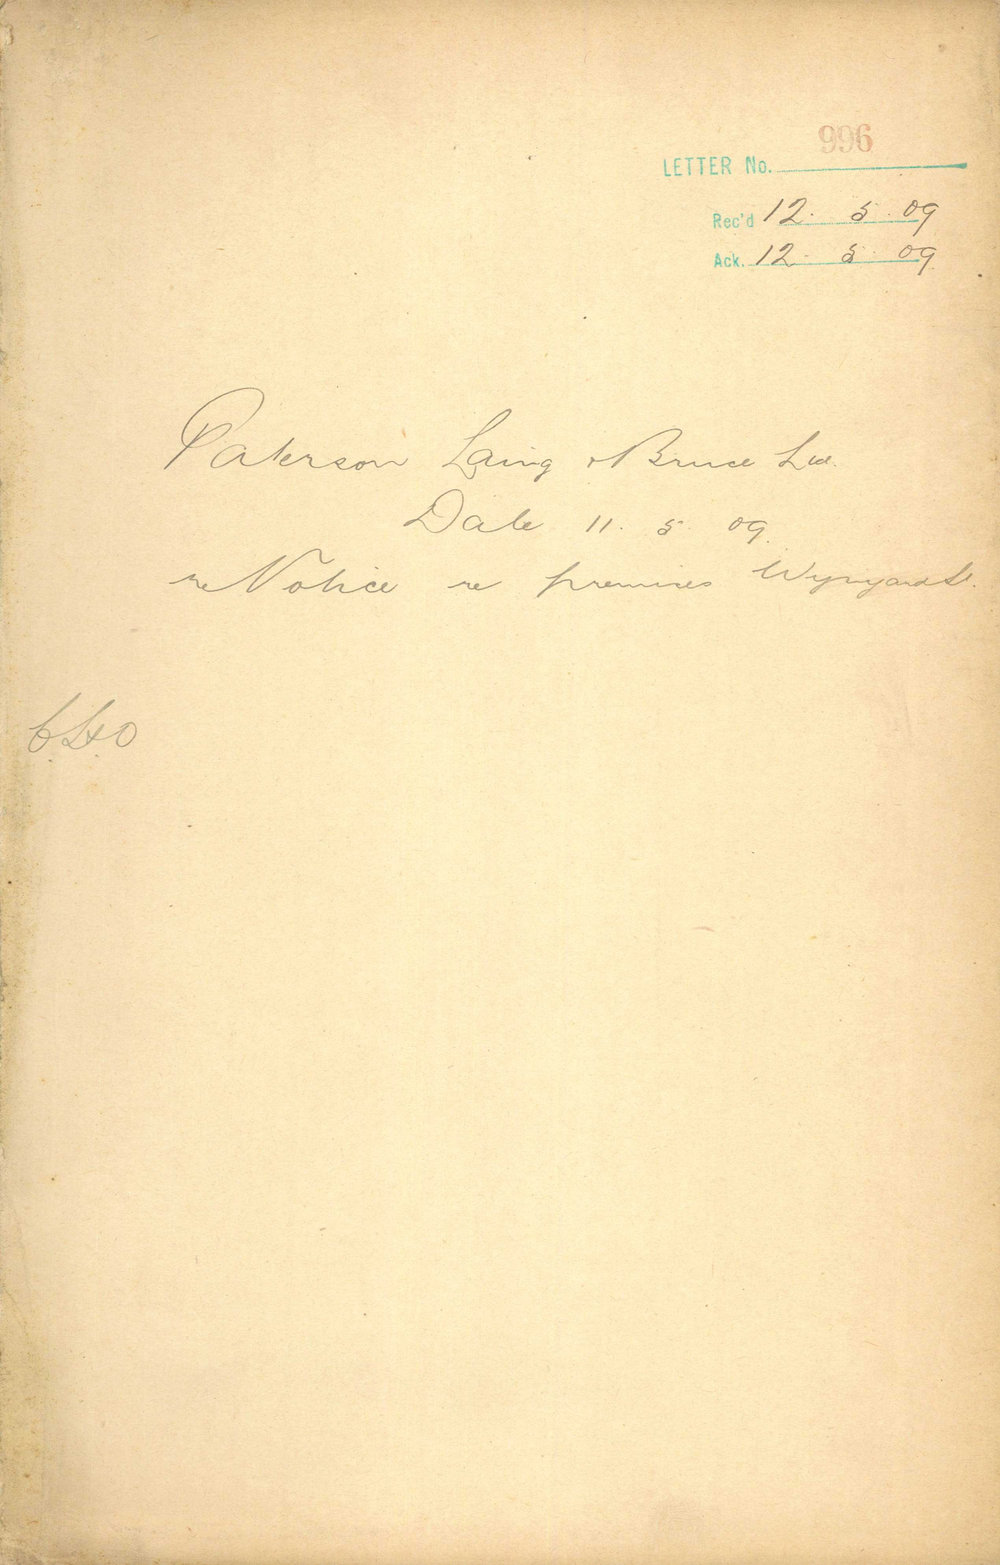 996
LETTER No.
Rec'd 12. 5. 09
Ack. 12. 5. 09.
Paterson Laing & Bruce Ltd.
Date 11. 5. 09.
re Notice re premises Wynyard St.